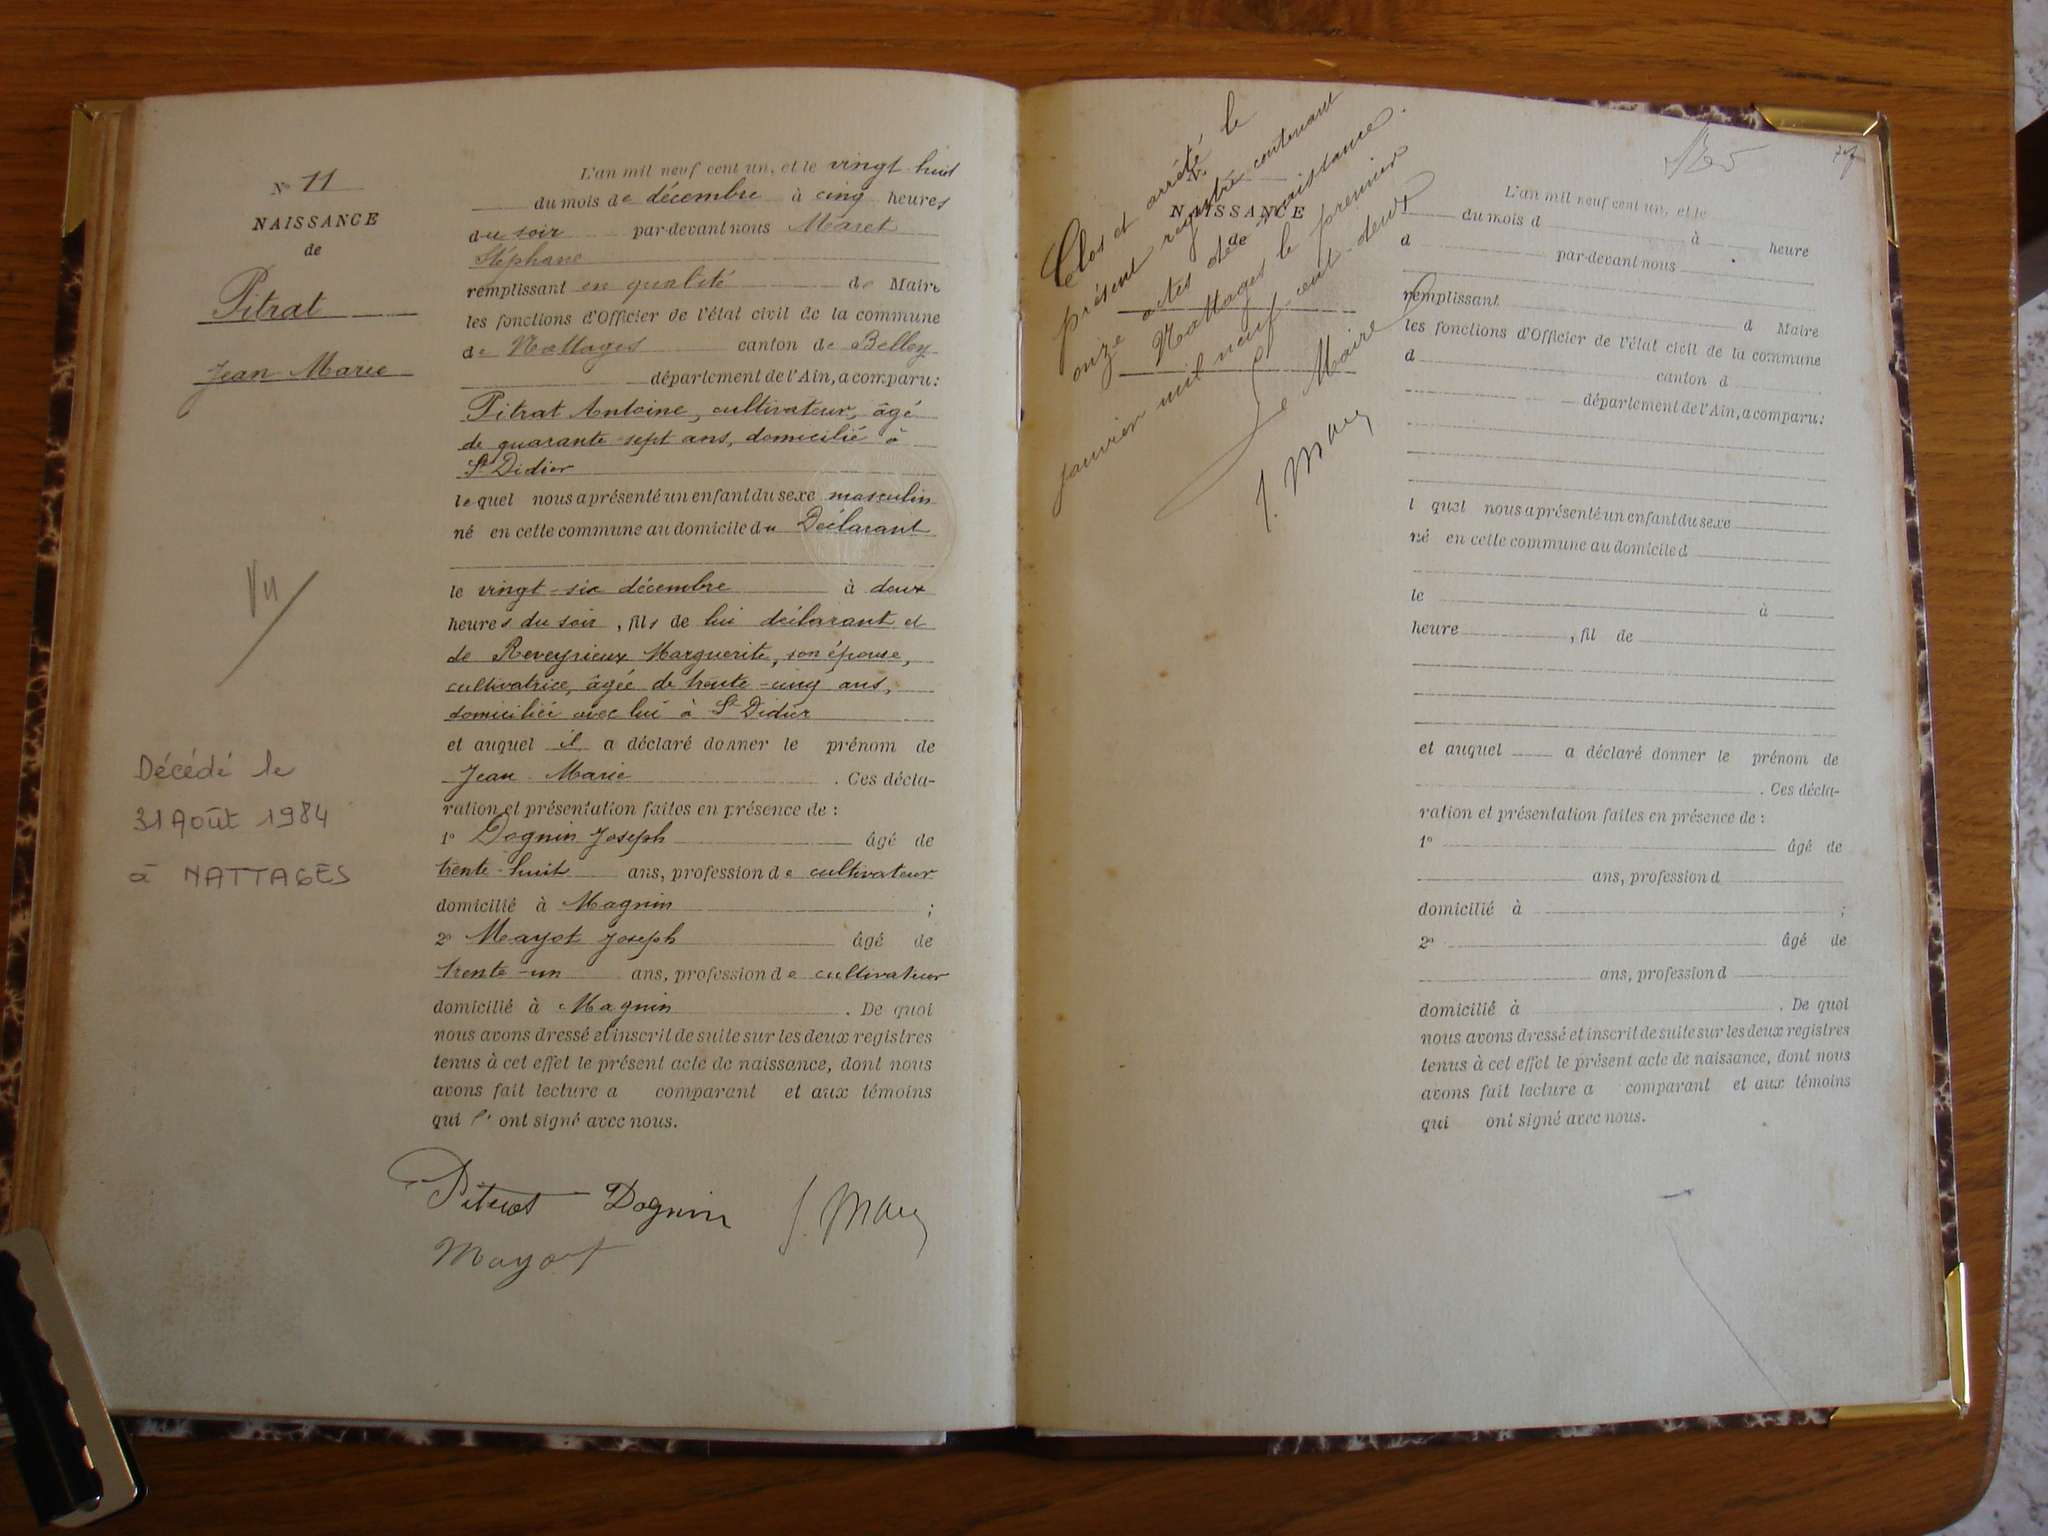 N° 11
NAISSANCE
de
Pitrat
Jean Marie
Vu
Décédé le
31 Août 1984
à NATTAGES
L'an mil neuf cent un, et le vingt huit
du mois de décembre à cinq heures
du soir par-devant nous Maret
Stéphane
remplissant en qualité de Maire
les fonctions d'Officier de l'état civil de la commune
de Nattages canton de Belley
département de l'Ain, a comparu:
Pitrat Antoine, cultivateur, âgé
de quarante-sept ans, domicilié à
St Didier
lequel nous a présenté un enfant du sexe masculin
né en cette commune au domicile du Déclarant
le vingt-six décembre à deux
heures du soir, fils de lui déclarant et
de Reveyrieux Marguerite, son épouse,
cultivatrice, âgée de trente-cinq ans,
domiciliée avec lui à St Didier
et auquel il a déclaré donner le prénom de
Jean Marie . Ces décla-
ration et présentation faites en présence de :
1° Dognin Joseph âgé de
trente-huit ans, profession de cultivateur
domicilié à Magnin ;
2° Mayot Joseph âgé de
trente-un ans, profession de cultivateur
domicilié à Magnin . De quoi
nous avons dressé et inscrit de suite sur les deux registres
tenus à cet effet le présent acte de naissance, dont nous
avons fait lecture a comparant et aux témoins
qui l' ont signé avec nous.
Pitrat Dognin S. Mary
Mayot
Clos et arrêté le
présent registre contenant
onze actes de naissance.
Nattages le premier
janvier mil neuf-cent-deux
Le Maire
S. Mary
N°
NAISSANCE
de
L'an mil neuf cent un, et le
du mois d à heure
d par-devant nous
remplissant d Maire
les fonctions d'Officier de l'état civil de la commune
d canton d
département de l'Ain, a comparu:
l quel nous a présenté un enfant du sexe
né en cette commune au domicile d
le à
heure , fil de
et auquel a déclaré donner le prénom de
. Ces décla-
ration et présentation faites en présence de :
1° âgé de
ans, profession d
domicilié à ;
2° âgé de
ans, profession d
domicilié à . De quoi
nous avons dressé et inscrit de suite sur les deux registres
tenus à cet effet le présent acte de naissance, dont nous
avons fait lecture a comparant et aux témoins
qui ont signé avec nous.